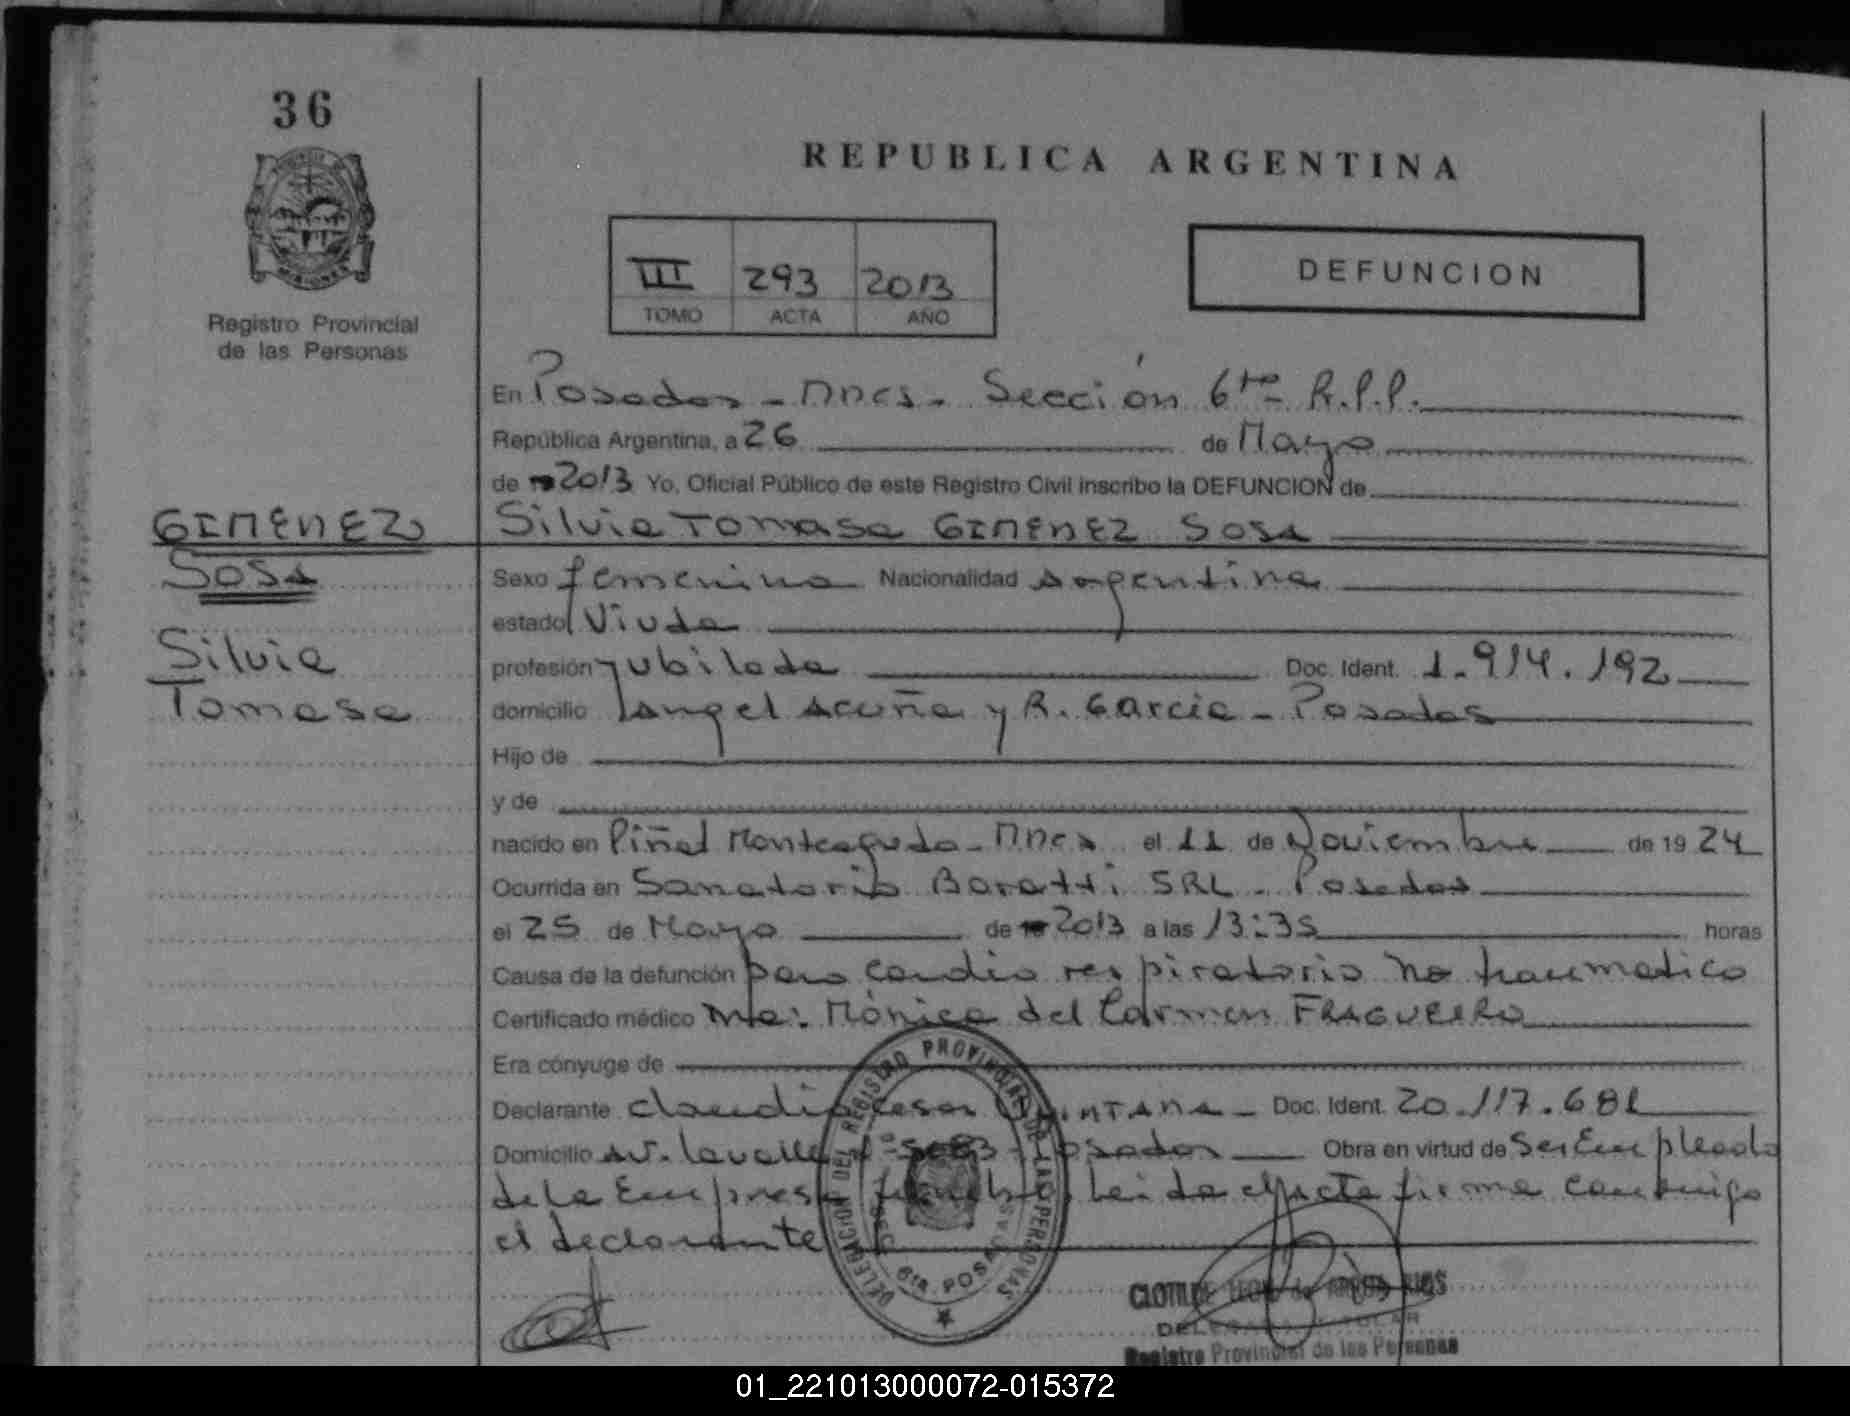 36
REPUBLICA ARGENTINA
MISIONES
Registro Provincial
de las Personas
III 293 2013
TOMO ACTA AÑO
DEFUNCION
En Posadas - Mnes. Sección 6ta R.P.P.
República Argentina, a 26 de Mayo
de 2013 Yo, Oficial Público de este Registro Civil inscribo la DEFUNCION de
GIMENEZ
SOSA
Silvia
Tomasa
Silvia Tomasa GIMENEZ SOSA
Sexo femenino Nacionalidad argentina
estado Viuda
profesión jubilada Doc. Ident. 1.914.192
domicilio Angel Acuña y R. Garcia - Posadas
Hijo de
y de
nacido en Piñal Monteagudo - Mnes el 11 de Noviembre de 19 24
Ocurrida en Sanatorio Boratti SRL - Posadas
el 25 de Mayo de 2013 a las 13:35 horas
Causa de la defunción paro cardio respiratorio no traumatico
Certificado médico Mónica del Carmen FRAGUEIRO
Era cónyuge de
Declarante Claudio Cesar QUINTANA - Doc. Ident. 20.117.681
Domicilio Av. Lavalle Posadas Obra en virtud de Ser Empleado
de la Empresa funebre. Leida el acta firma conmigo
el declarante
DELEGACION DEL REGISTRO PROVINCIAL DE LAS PERSONAS
6ta. POSADAS
CLOTILDE LEON de RIOS
DELEGADA TITULAR
Registro Provincial de las Personas
01_221013000072-015372